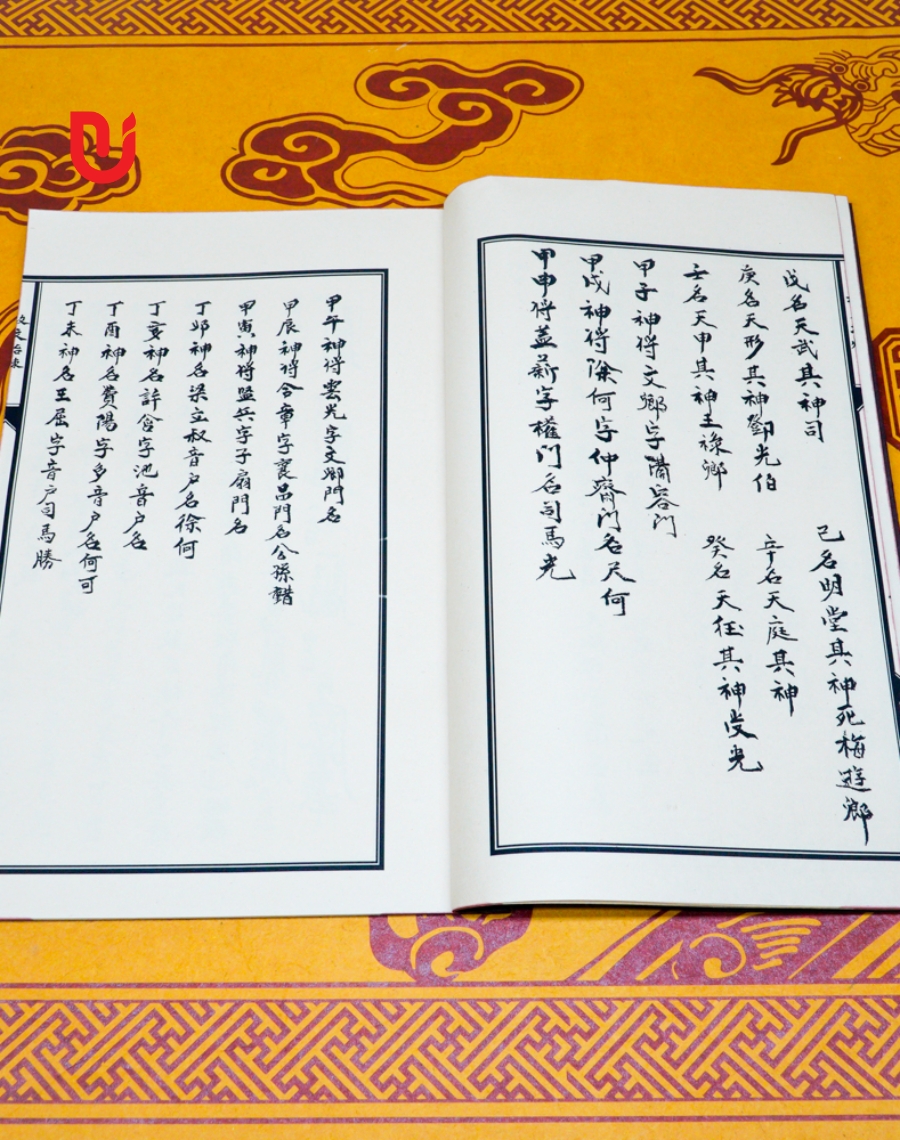 戊名天武其神司
己名明堂其神死梅遊鄉
庚名天形其神鄧光伯
辛名天庭其神
壬名天甲其神王祿鄉
癸名天任其神受光
甲子神将文鄉字溝容门
甲戌神将除何字仲齊门名尺何
甲申将盖薪字權门名司馬光
甲午神将雲光字文鄉門名
甲辰神将合章字襄昌門名公孫錯
甲寅神将監兵字子扇門名
丁卯神名梁立叔音户名徐何
丁亥神名許咎字池音户名
丁酉神名費陽字多音户名何可
丁未神名王屈字音户司馬勝